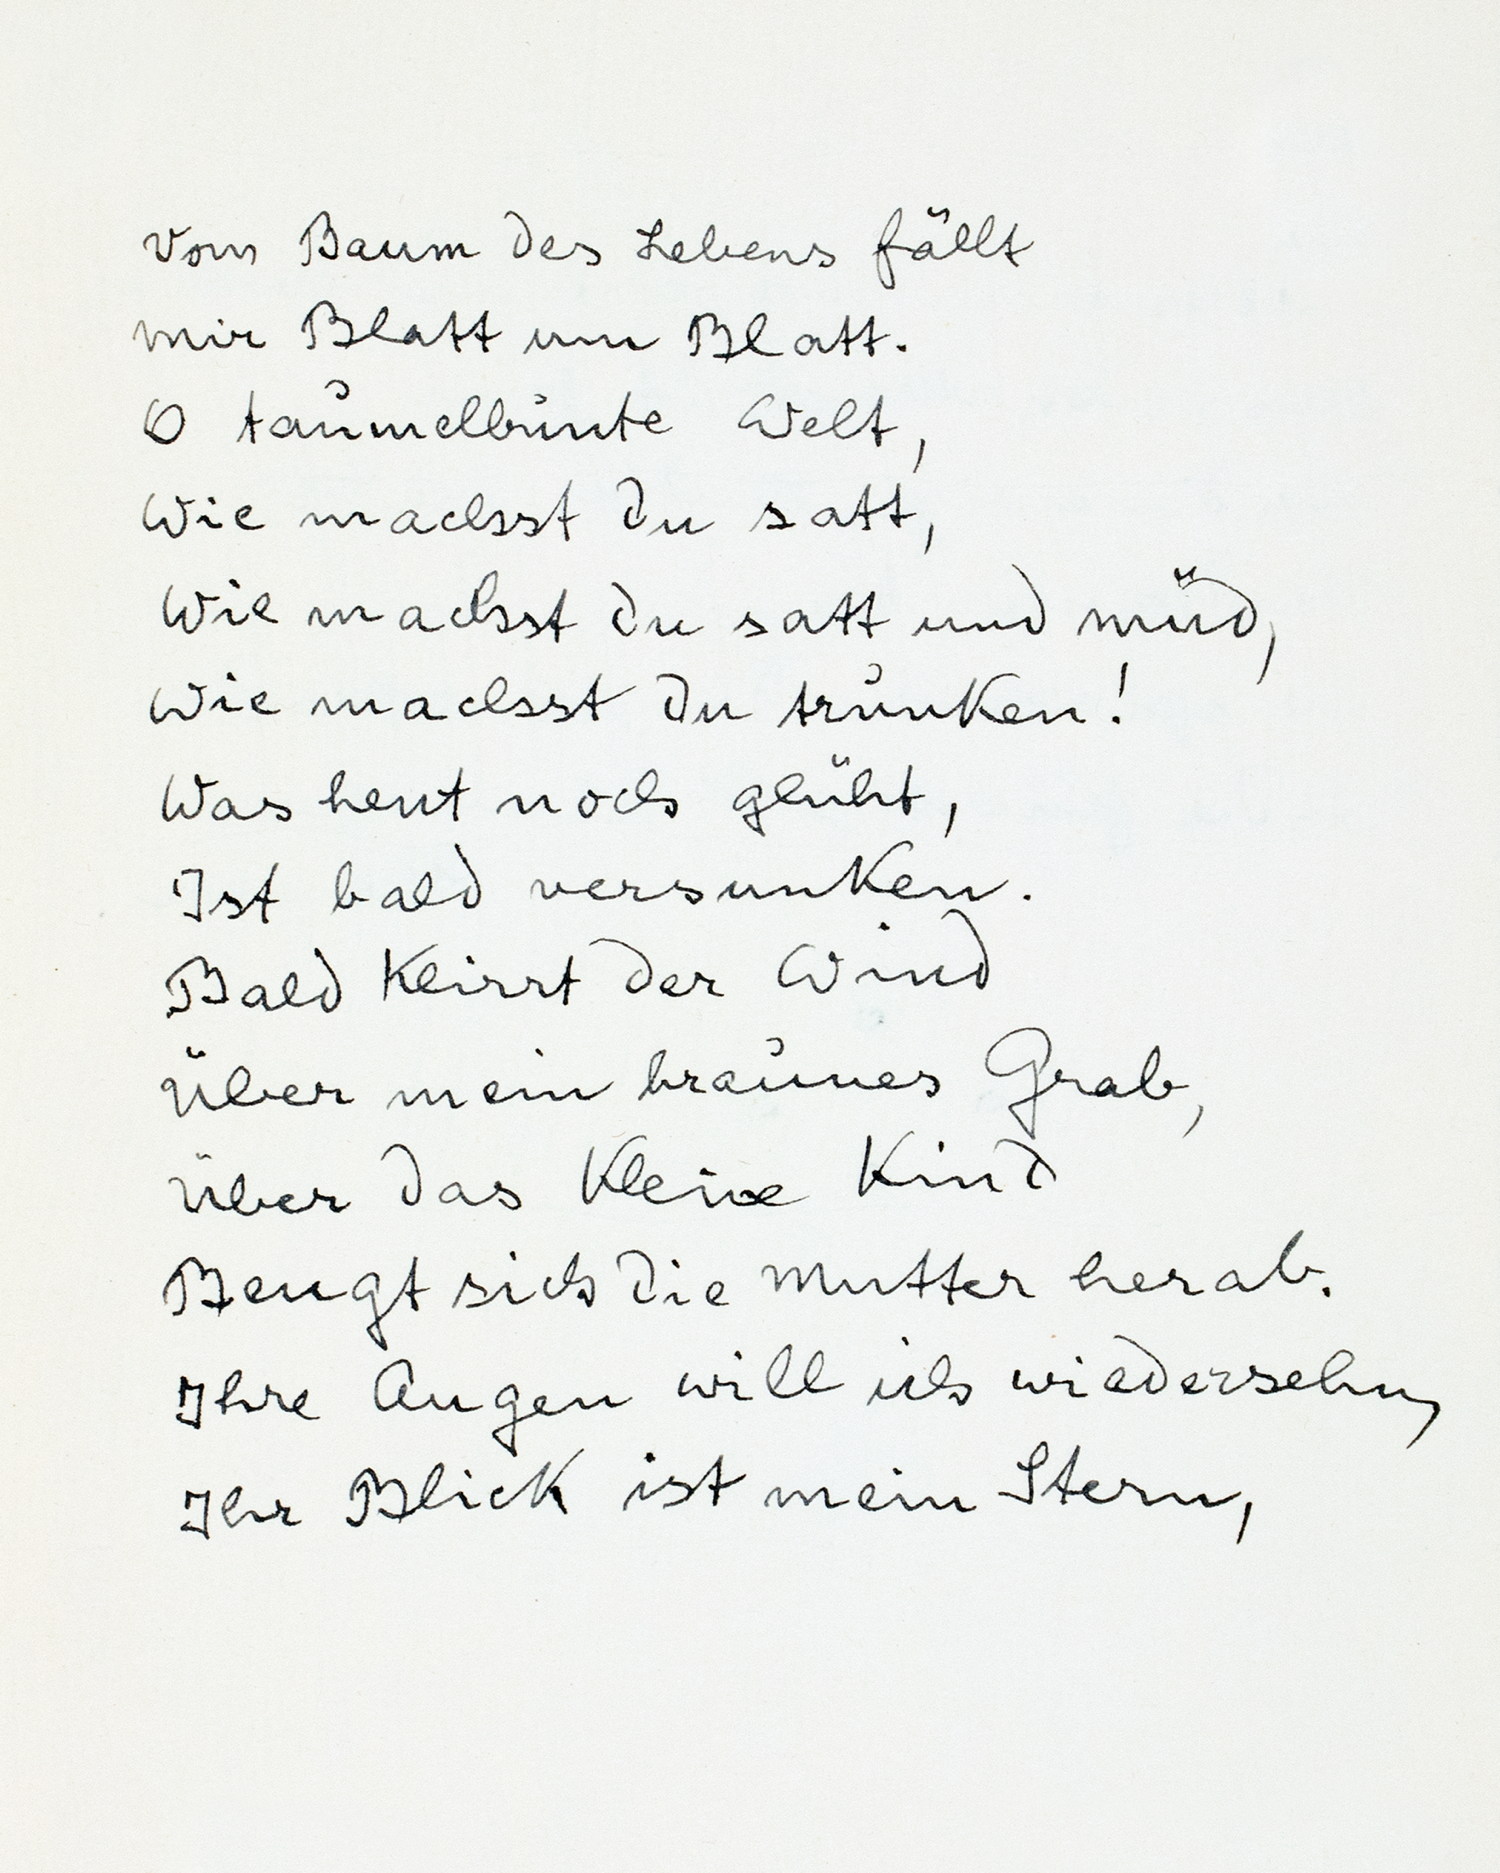 Vom Baum des Lebens fällt
mir Blatt um Blatt.
O taumelbunte Welt,
Wie machst du satt,
Wie machst du satt und müd,
Wie machst du trunken!
Was heut noch glüht,
Ist bald versunken.
Bald klirrt der Wind
Über mein braunes Grab,
Über das kleine Kind
Beugt sich die Mutter herab.
Ihre Augen will ich wiedersehn,
Ihr Blick ist mein Stern,